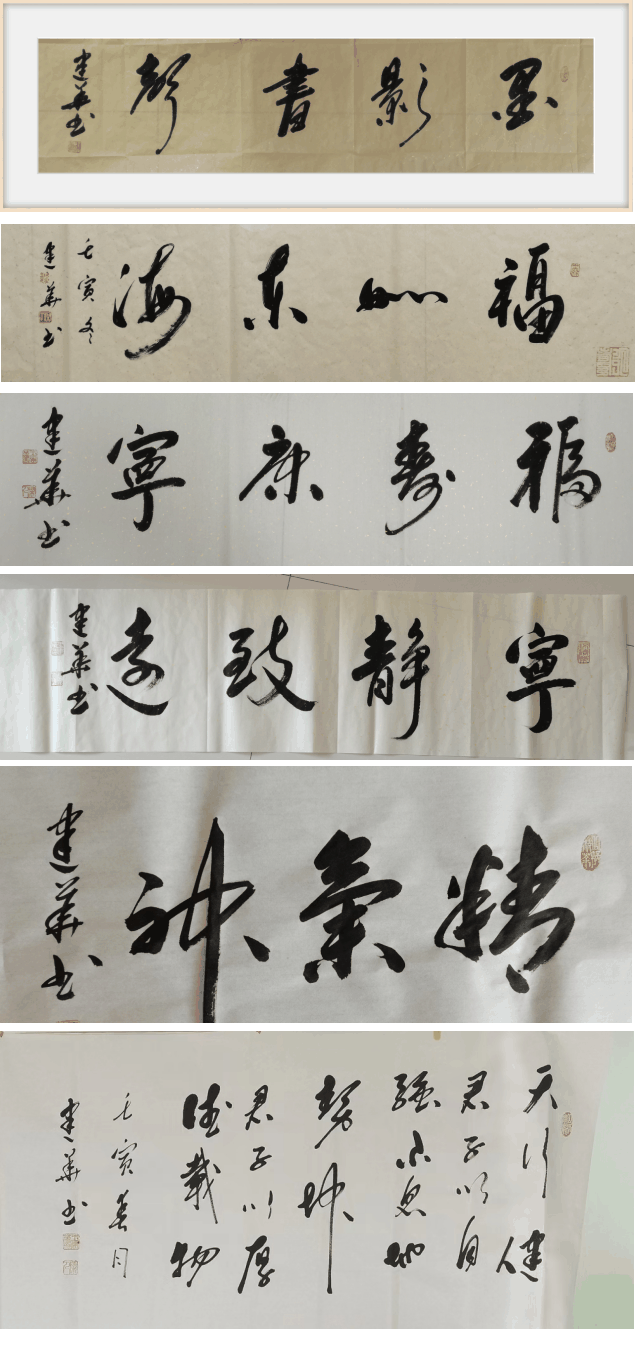 墨影書聲
建華书
福如东海
壬寅冬
建華书
福寿康寧
建華书
寧静致远
建華书
精氣神
建華书
天行健
君子以自
强不息地
势坤
君子以厚
德載物
壬寅春月
建華书